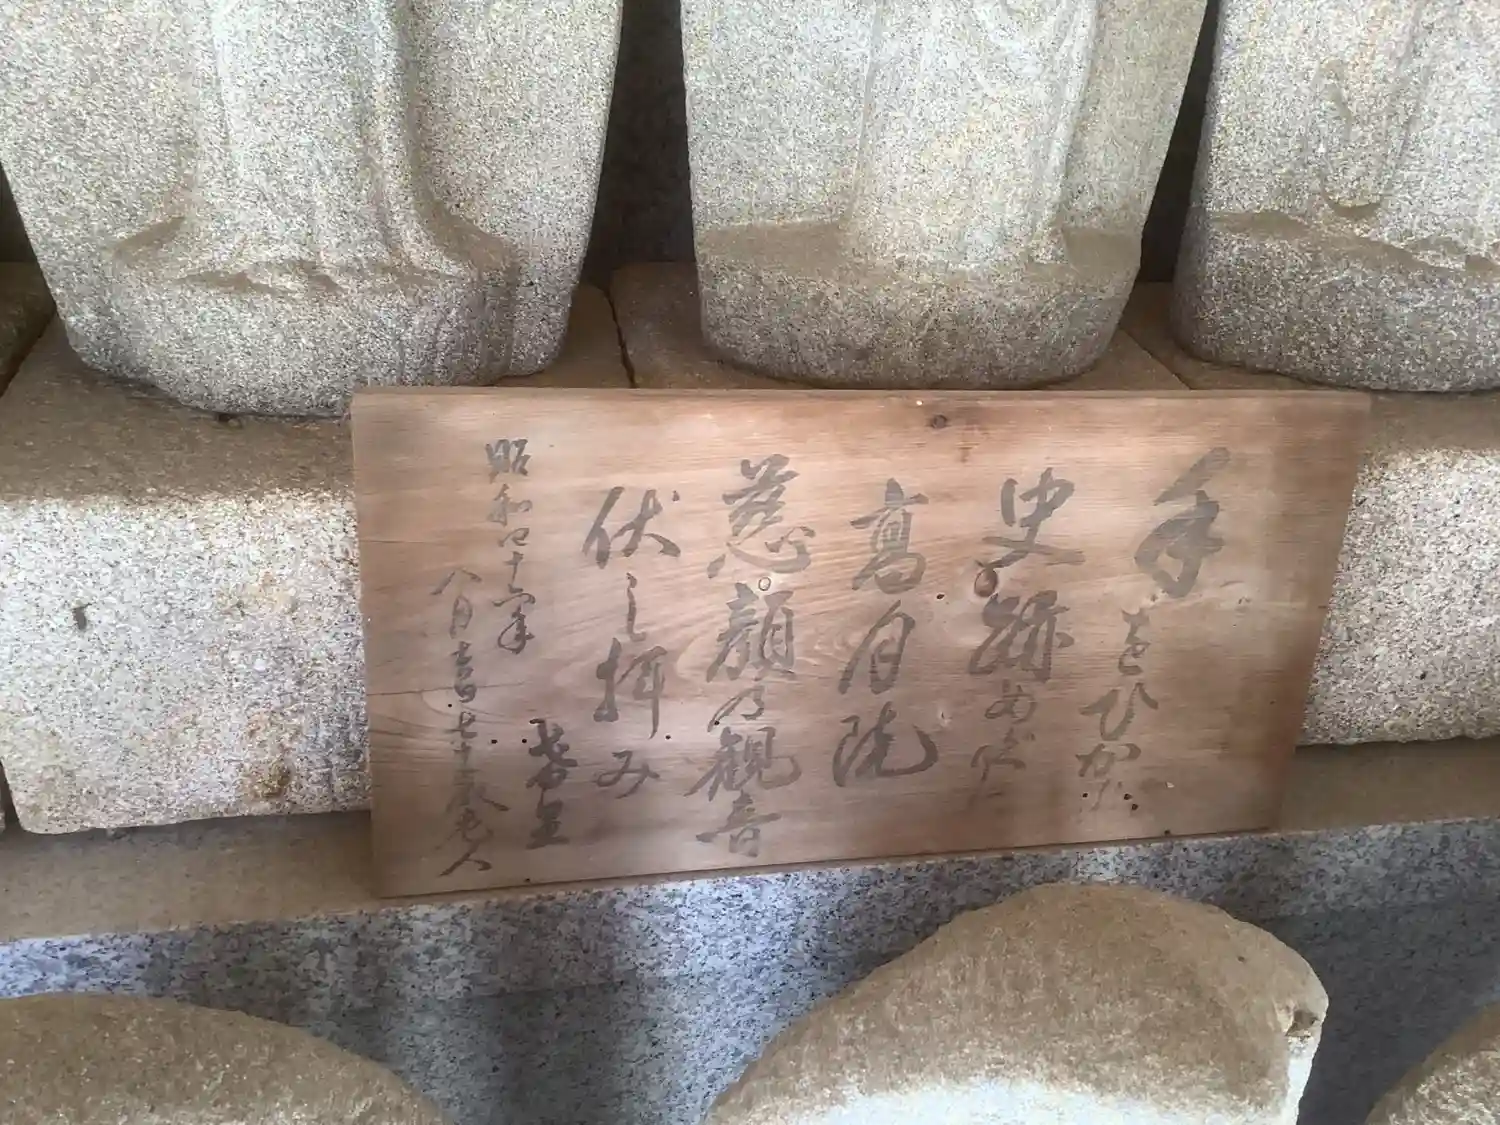 手をひかれ
史跡めぐり
高月院
慈顔の観音
伏し拝み
昭和四十六年
八月吉日七十一歳老人